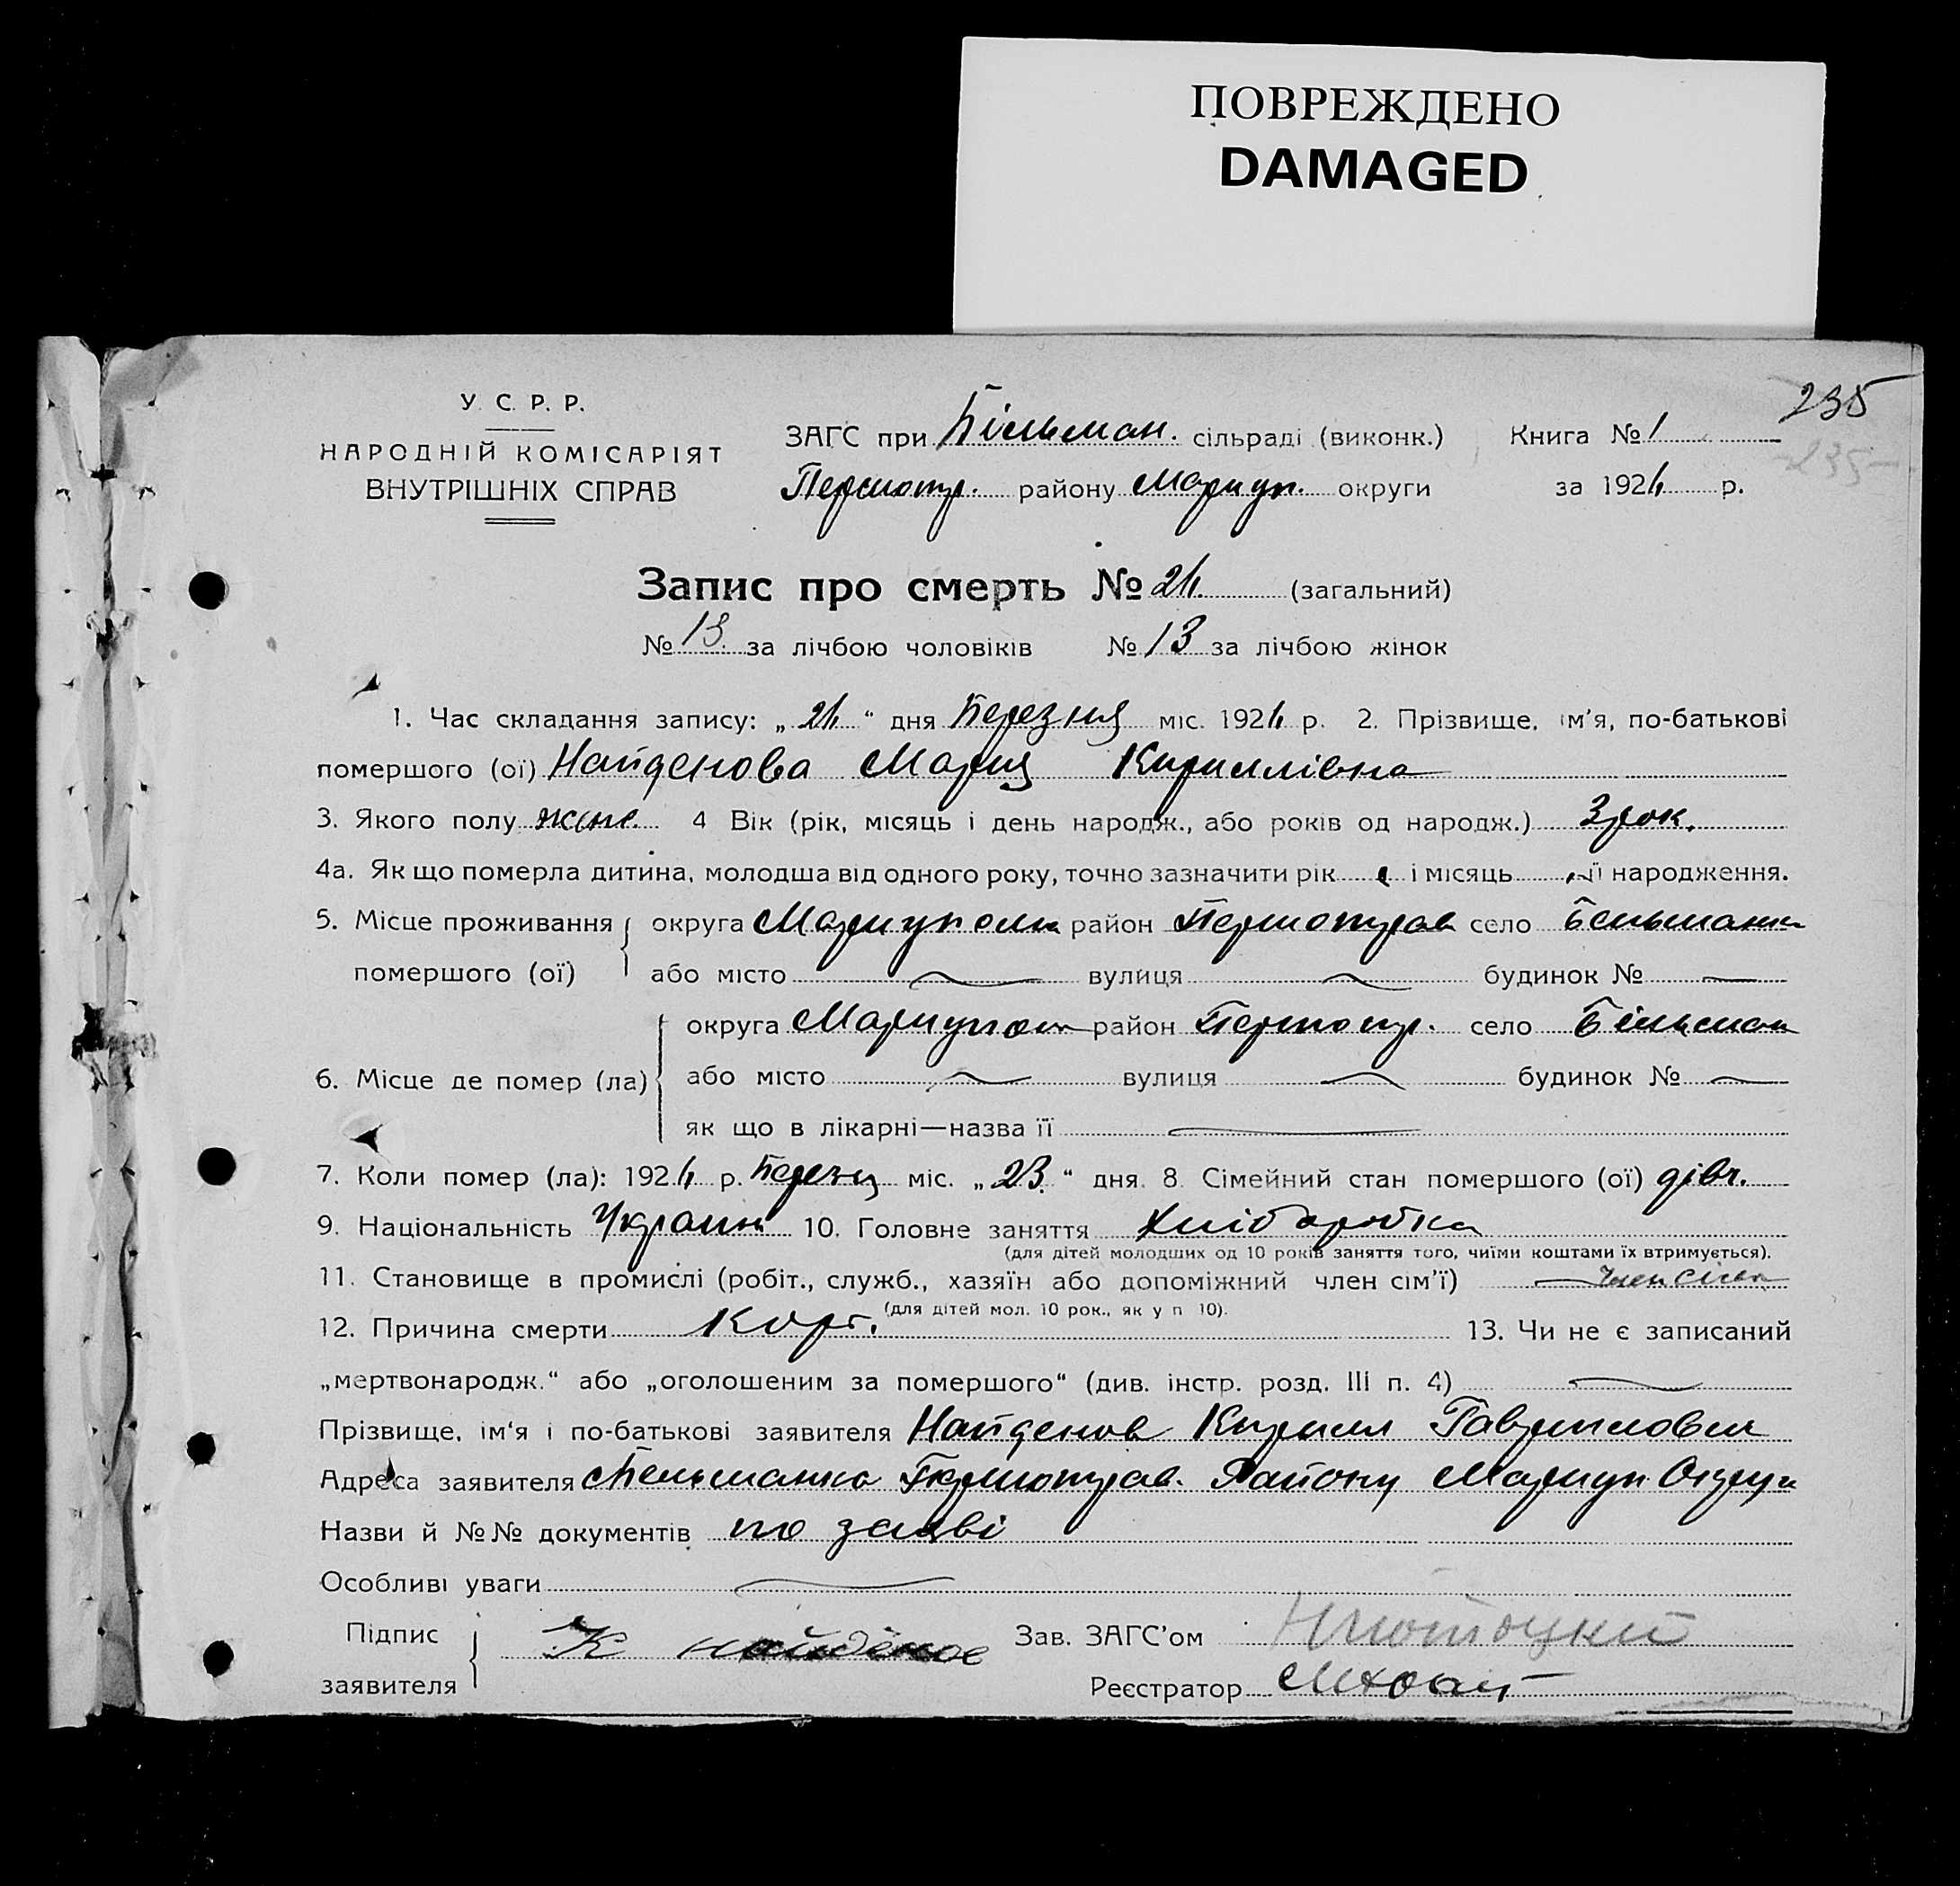 ПОВРЕЖДЕНО
DAMAGED
235
У. С. Р. Р.
НАРОДНІЙ КОМІСАРІЯТ
ВНУТРІШНІХ СПРАВ
ЗАГС при Більман. сільраді (виконк.) Книга № 1
-235-
району Мариуп. округи за 192 р.
Запис про смерть № (загальний)
№ 13. за лічбою чоловіків № 13 за лічбою жінок
1. Час складання запису: „ “ дня Березня міс. 192 р. 2. Прізвище, ім'я, по-батькові
помершого (ої) Найденова Мария Кириллівна
3. Якого полу жіно. 4 Вік (рік, місяць і день народж., або років од народж.) 3 рок.
4а. Як що померла дитина, молодша від одного року, точно зазначити рік і місяць її народження.
5. Місце проживання округа Мариуполь район село Бельманка
помершого (ої) або місто вулиця будинок №
округа Мариупол район село Більман
6. Місце де помер (ла) або місто вулиця будинок №
як що в лікарні—назва її
7. Коли помер (ла): 192 р. Березня міс. „23.“ дня. 8. Сімейний стан помершого (ої) дівч.
9. Національність Украин 10. Головне заняття Хліборобка
(для дітей молодших од 10 років заняття того, чиїми коштами їх втримується).
11. Становище в промислі (робіт., служб., хазяїн або допоміжний член сім'ї) член сімї
(для дітей мол. 10 рок., як у п 10).
12. Причина смерти Корь. 13. Чи не є записаний
„мертвонародж.“ або „оголошеним за помершого“ (див. інстр. розд. III п. 4)
Прізвище, ім'я і по-батькові заявителя Найденов Кирилл Гаврилович
Адреса заявителя Бельманка Району Мариуп. Округи
Назви й №№ документів по заяві
Особливі уваги
Підпис К найдёнов Зав. ЗАГС'ом
заявителя Реєстратор